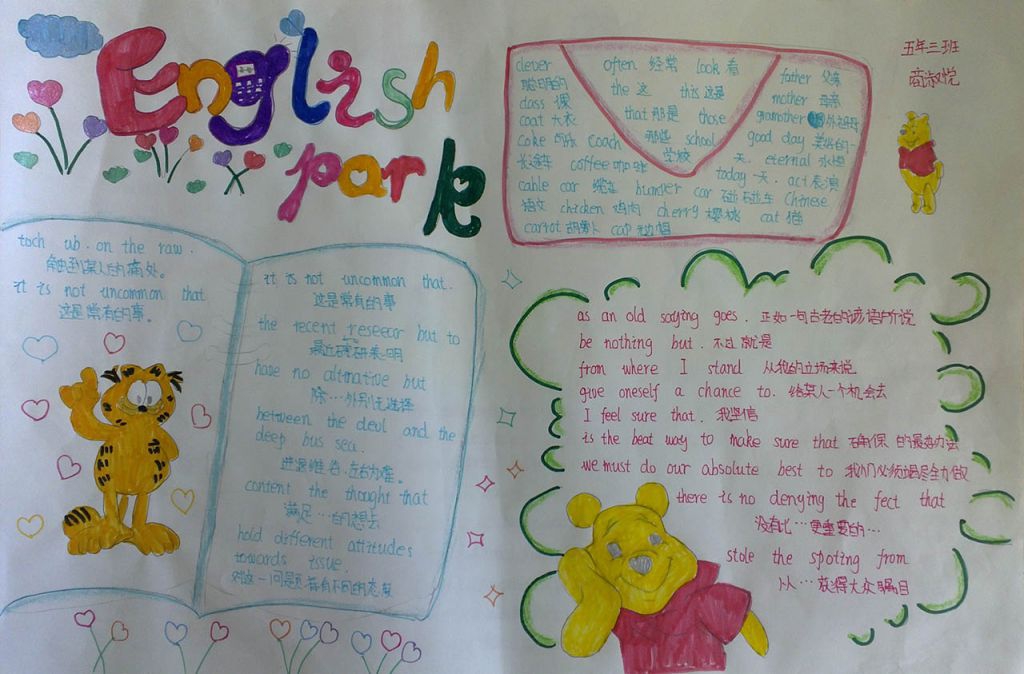 English
park
五年三班
clever often 经常 look 看 father 父亲
聪明的 the 这 this 这是 mother 母亲
class 课 that 那是 those grandmother 外祖母
coat 大衣 那些 school good day 美好的一
coke 可乐 coach 学校 天. eternal 永恒
长途车 coffee 咖啡 today 天. act 表演
cable car 缆车 bumper car 碰碰车 Chinese
语文 chicken 鸡肉 cherry 樱桃 cat 猫
carrot 胡萝卜 cap
toch ub. on the raw.
触到某人的痛处。
it is not uncommon that
这是常有的事。
it is not uncommon that.
这是常有的事
the recent reseecar but to
最近 研表明
have no altrnative but
除…外别无选择
between the devl and the
deep bus sea.
进退维谷.左右为难.
content the thought that
满足…的想去
hold different attitudes
towards issue.
对这一问题 有不同的态度
as an old saying goes. 正如一句古老的谚语所说
be nothing but. 不过就是
from where I stand 从我的立场来说
give oneself a chance to. 给某人一个机会去
I feel sure that. 我坚信
is the beat way to make sure that 确保 的最好办法
we must do our absolute best to 我们必须竭尽全力做
there is no denying the fect that
没有比…更重要的…
stole the spoting from
从…获得大众瞩目